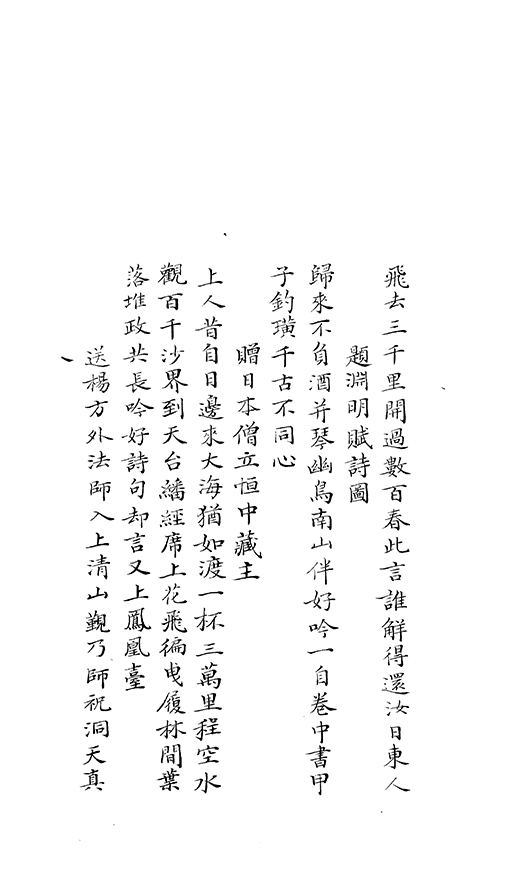 飛去三千里開過數百春此言誰解得還汝日東人
題淵明賦詩圖
歸來不負酒并琴幽鳥南山伴好吟一自卷中書甲
子釣璜千古不同心
贈日本僧立恒中藏主
上人昔自日邊來大海猶如渡一杯三萬里程空水
觀百千沙界到天台繙經席上花飛徧曳履林間葉
落堆政共長吟好詩句却言又上鳳凰臺
送楊方外法師入上清山覲乃師祝洞天真